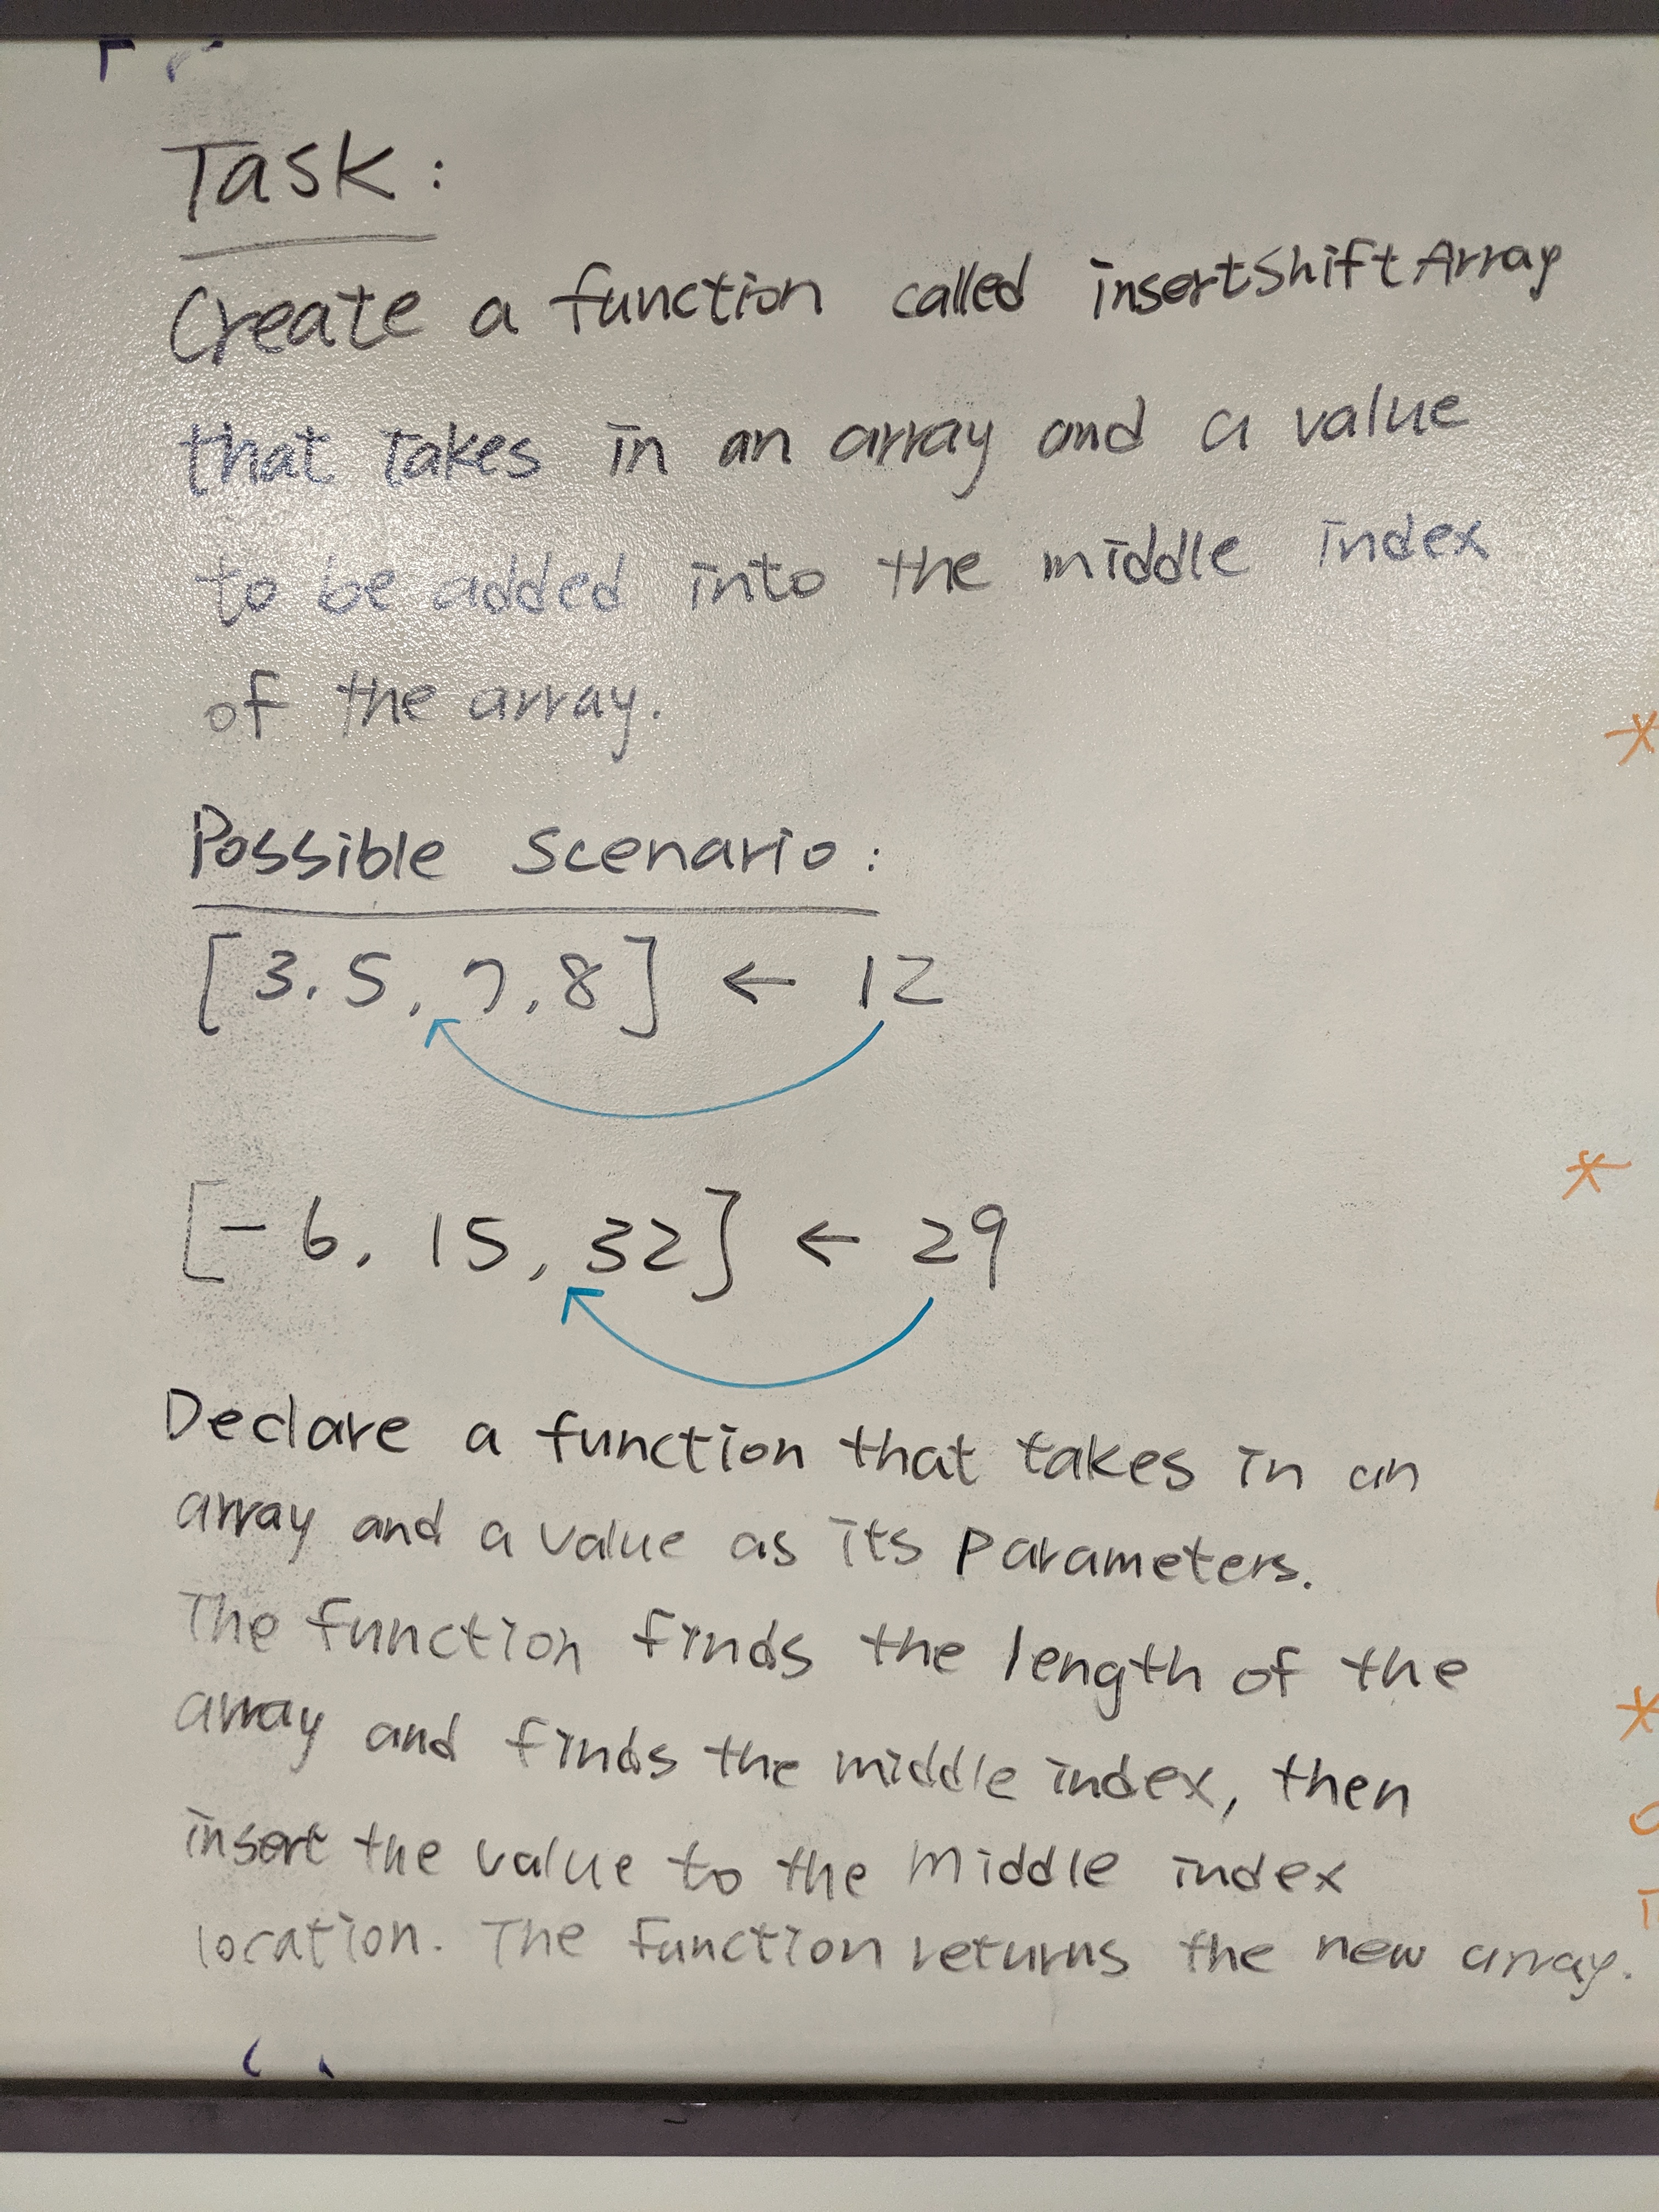 Task:
Create a function called insertShiftArray
that takes in an array and a value
to be added into the middle index
of the array.
Possible Scenario:
[3, 5, 7, 8] ← 12
[-6, 15, 32] ← 29
Declare a function that takes in an
array and a value as its parameters.
The function finds the length of the
array and finds the middle index, then
insert the value to the middle index
location. The function returns the new array.